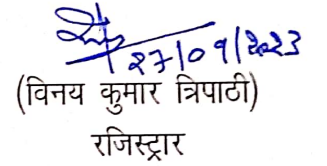 27/09/2023
(विनय कुमार त्रिपाठी)
रजिस्ट्रार